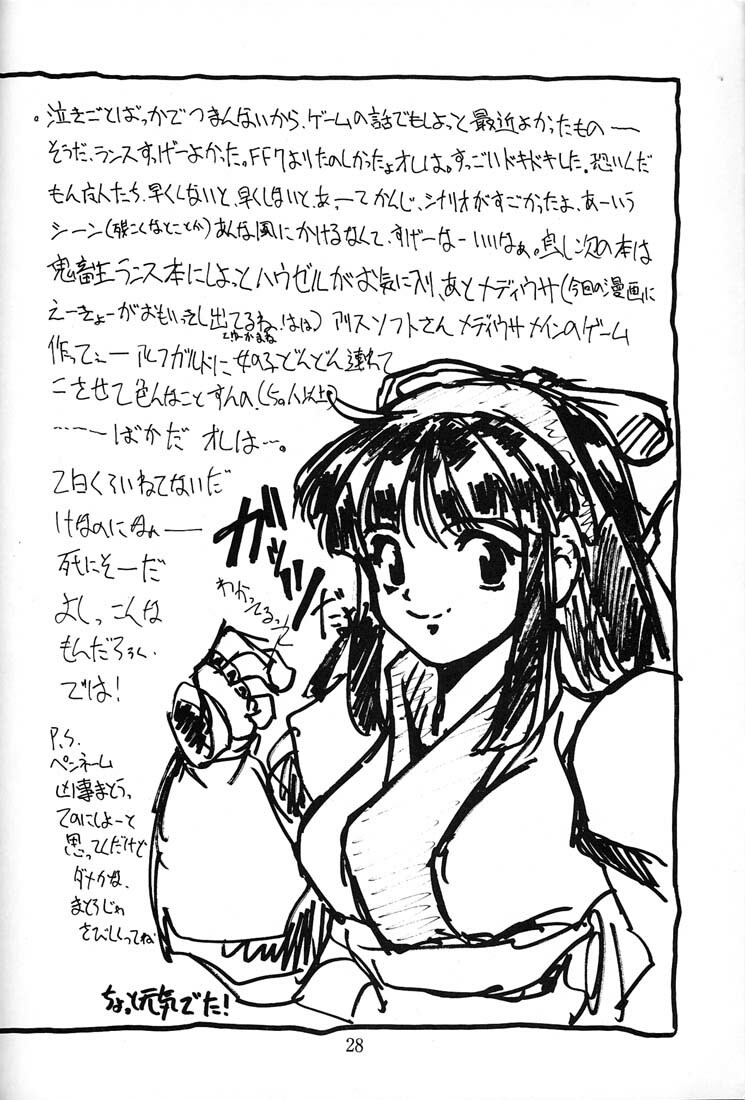 。泣きごとばっかでつまんないから、ゲームの話でもしよっと最近よかったもの——
そうだ、ランスすっげーよかった。FF7よりたのしかったょオレは。すっごいドキドキした。恐いんだ
もん友人たち、早くしないと、早くしないと、あ、ーてかんじ、シナリオがすごかったよ、あーいう
シーン(なとことか)あんな風にかけるなんて、すげーなーいいなぁ。良し次の本は
鬼畜王ランス本にしよっとハウゼルがお気に入り、あとメディウサ(今回の漫画に
えーきょーがおもいきし出てるね、はは)アリスソフトさんメディウサメインのゲーム
作ってぇーアルフガルドに女の子どんどん連れて
こさせて色んなことすんの、(50人以上)
……ーばかだ オレは…。
2日くらいねてないだ
けなのになぁ——
死にそーだ
よしっこんな
もんだろぅ、
では!
ガッツ
だっ
わかってるって
P.S.
ペンネーム
凶事まとう、
てのにしよーと
思ってんだけど
ダメかな、
まとうじゃ
さびしくってね
ちょっと元気でた!
28